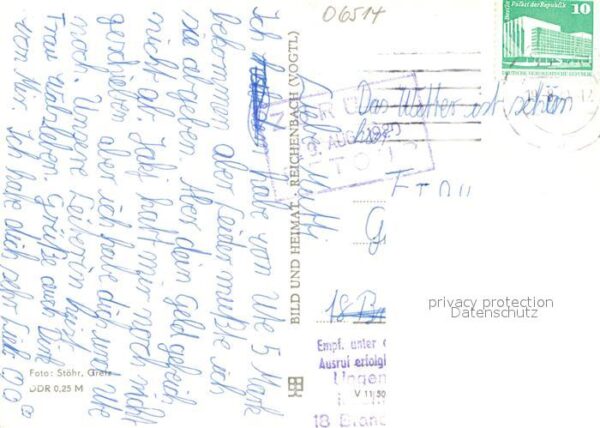 06514
Berlin Palast der Republik
10
DEUTSCHE DEMOKRATISCHE REPUBLIK
Das Wetter ist schön
hier
Liebe Mutti
Ich habe von Ute 5 Mark
bekommen aber leider mußte ich
sie abgeben. Aber dein Geld geb ich
nicht ab. Jabi hatt mir noch nicht
geschrieben aber ich habe dich und Ute
noch. Unsere Leiterin hist
Frau
Grüße auch Dirk
von Mir Ich habe dich sehr Lieb
BILD UND HEIMAT REICHENBACH (VOGTL)
ZURÜCK
AUG. 1980
Frau
G
18 B
Empf. unter
Ausruf erfolg
18 Bran
privacy protection
Datenschutz
Foto: Stöhr, Greiz
DDR 0,25 M
V 11 50